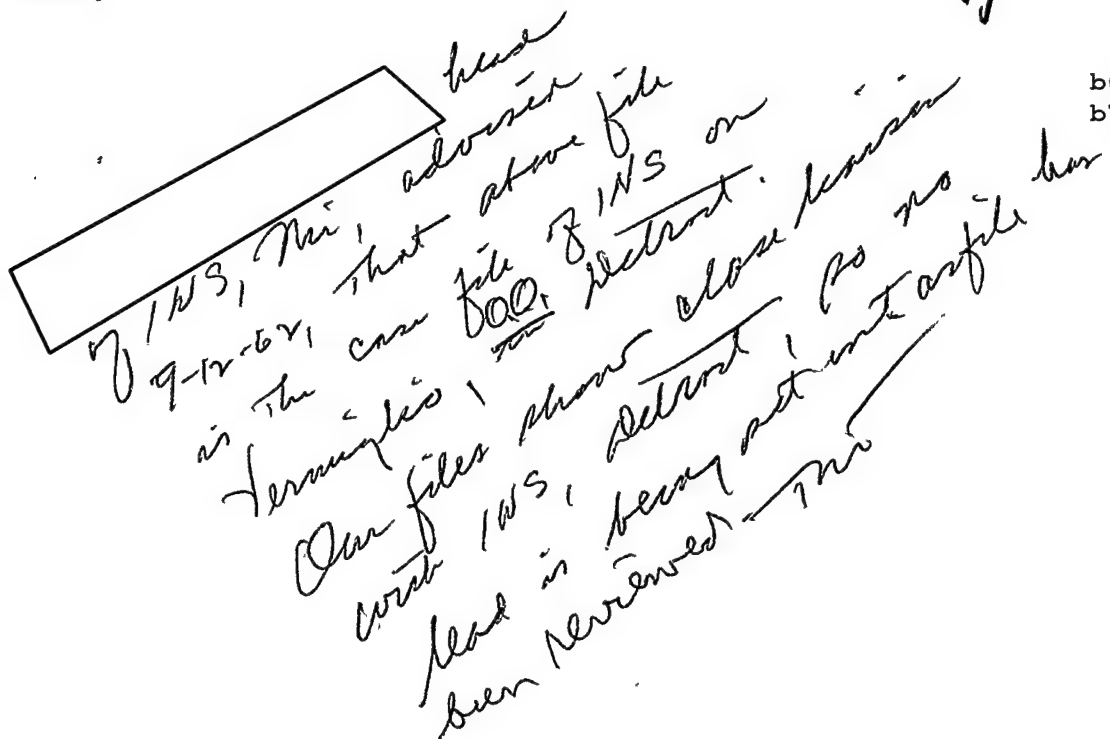 head
of INS, Mi, advised
9-12-62, that above file
is the case file of INS on
Vermiglio, OO, Detroit.
Our files show close liaison
with INS, Detroit, so no
lead is being set out as file has
been reviewed Mi
b
b